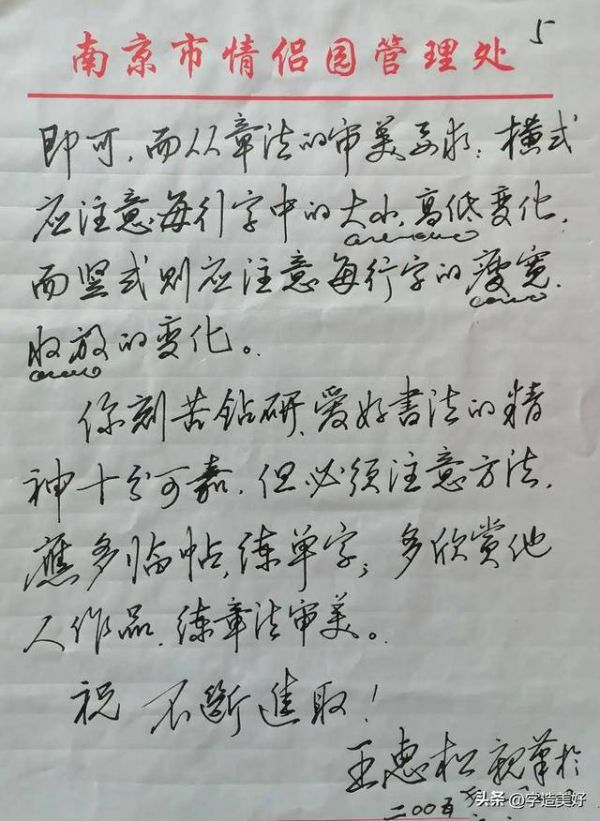 5
南京市情侣园管理处
即可，而从章法的审美要求：横式
应注意每行字中的大小，高低变化，
而竖式则应注意每行字的瘦宽，
收放的变化。
你刻苦钻研、爱好書法的精
神十分可嘉，但必须注意方法，
應多临帖，练单字；多欣赏他
人作品，练章法审美。
祝 不斷進取！
王惠松親筆於
二00五
头条 @字造美好